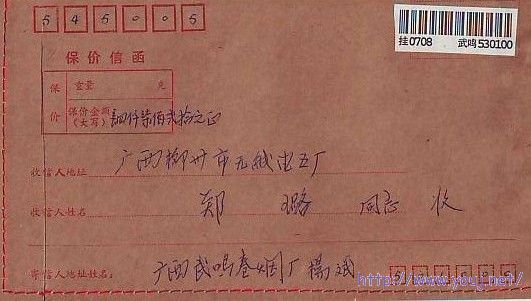 545005
挂0708 武鸣530100
保价信函
保价
重量 克
保价金额
(大写)
肆仟柒佰贰拾元正
收信人地址 广西柳州市无线电五厂
收信人姓名 郑 璐 同志 收
寄信人地址姓名: 广西武鸣卷烟厂 杨斌
http://www.youj.net/